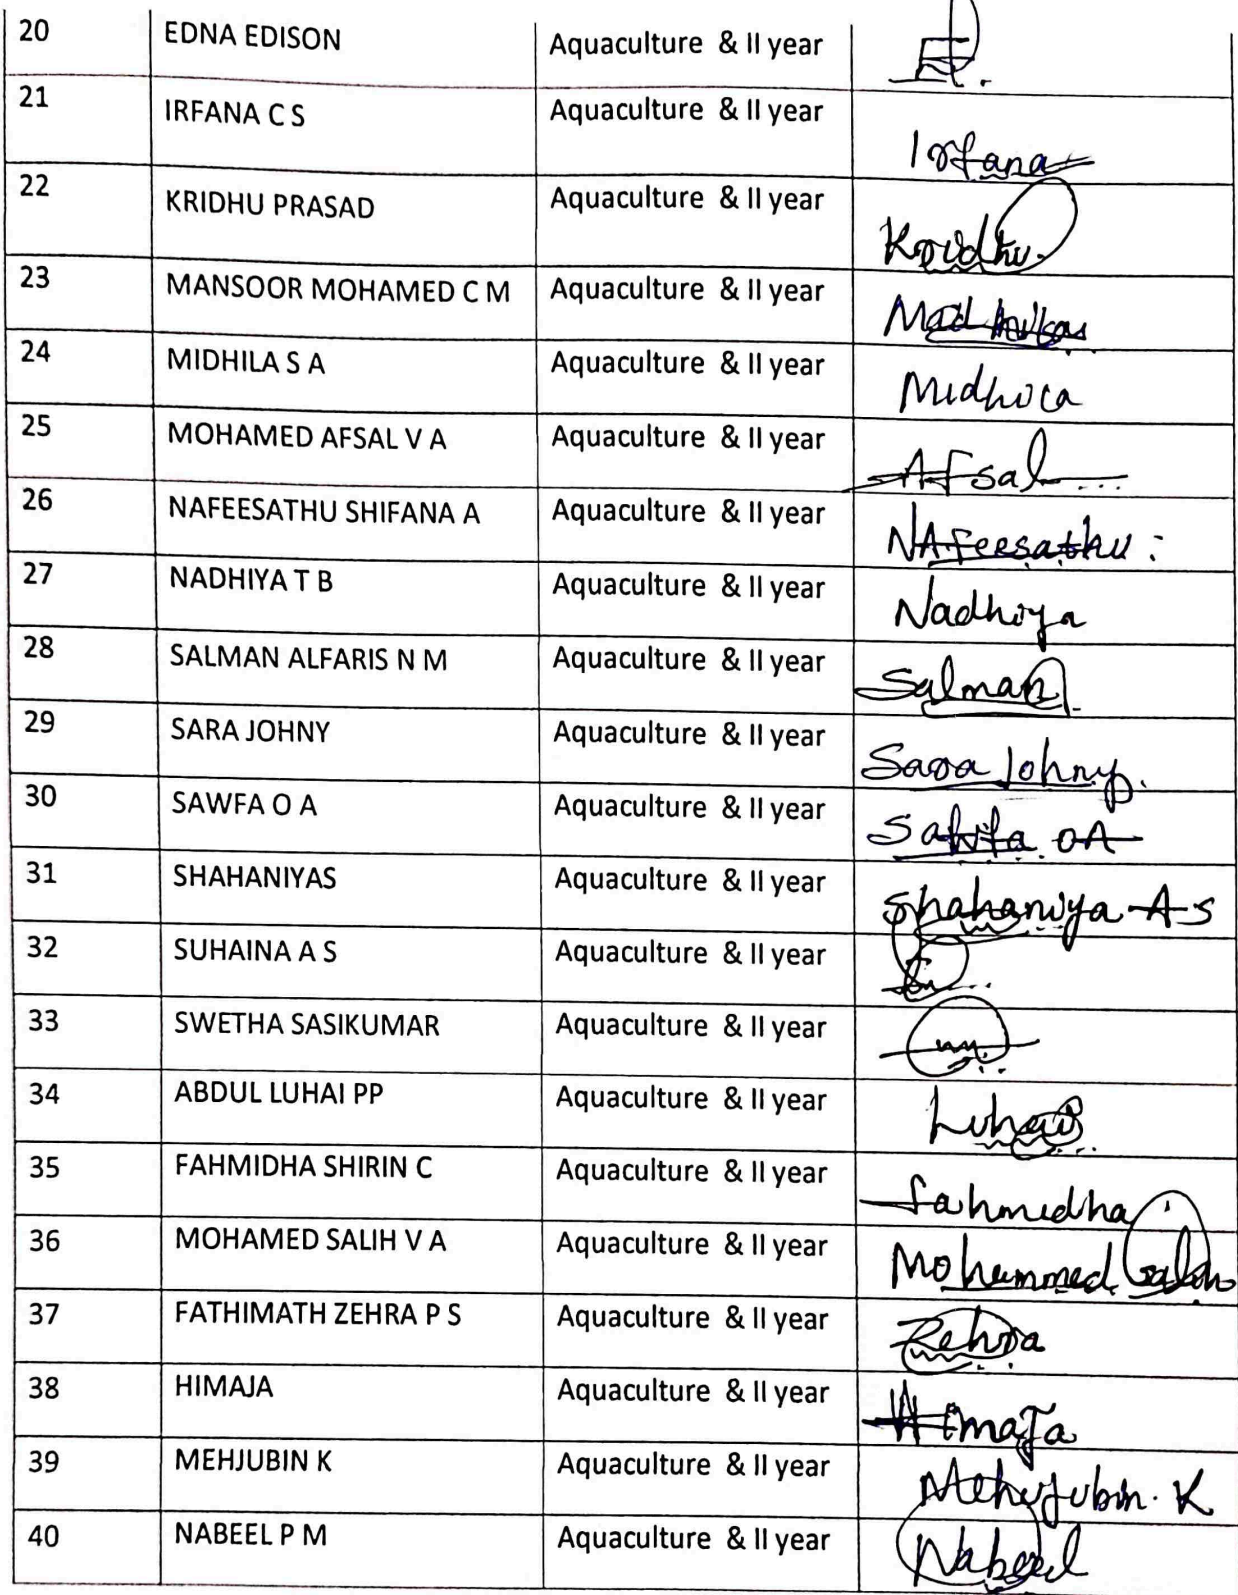 20 EDNA EDISON Aquaculture & II year
21 IRFANA C S Aquaculture & II year Irfana
22 KRIDHU PRASAD Aquaculture & II year Kridhu.
23 MANSOOR MOHAMED C M Aquaculture & II year
24 MIDHILA S A Aquaculture & II year Midhila
25 MOHAMED AFSAL V A Aquaculture & II year Afsal
26 NAFEESATHU SHIFANA A Aquaculture & II year NAfeesathu :
27 NADHIYA T B Aquaculture & II year Nadhiya
28 SALMAN ALFARIS N M Aquaculture & II year Salman
29 SARA JOHNY Aquaculture & II year Sara Johny.
30 SAWFA O A Aquaculture & II year OA
31 SHAHANIYAS Aquaculture & II year Shahaniya A S
32 SUHAINA A S Aquaculture & II year
33 SWETHA SASIKUMAR Aquaculture & II year
34 ABDUL LUHAI PP Aquaculture & II year Luhai
35 FAHMIDHA SHIRIN C Aquaculture & II year Fahmidha
36 MOHAMED SALIH V A Aquaculture & II year Mohammed Salih
37 FATHIMATH ZEHRA P S Aquaculture & II year Zehra
38 HIMAJA Aquaculture & II year HimaJa
39 MEHJUBIN K Aquaculture & II year Mehjubin. K
40 NABEEL P M Aquaculture & II year Nabeel